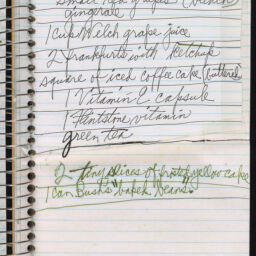 small red grapes (bunch
gingerale
1 cup Welch grape juice
2 frankfurts with ketchup
square of iced coffee cake (buttered)
1 Vitamin E capsule
1 Flintstone vitamin
green tea
2 tiny slices of frosted yellow cake
1 can Bush's "baked beans".